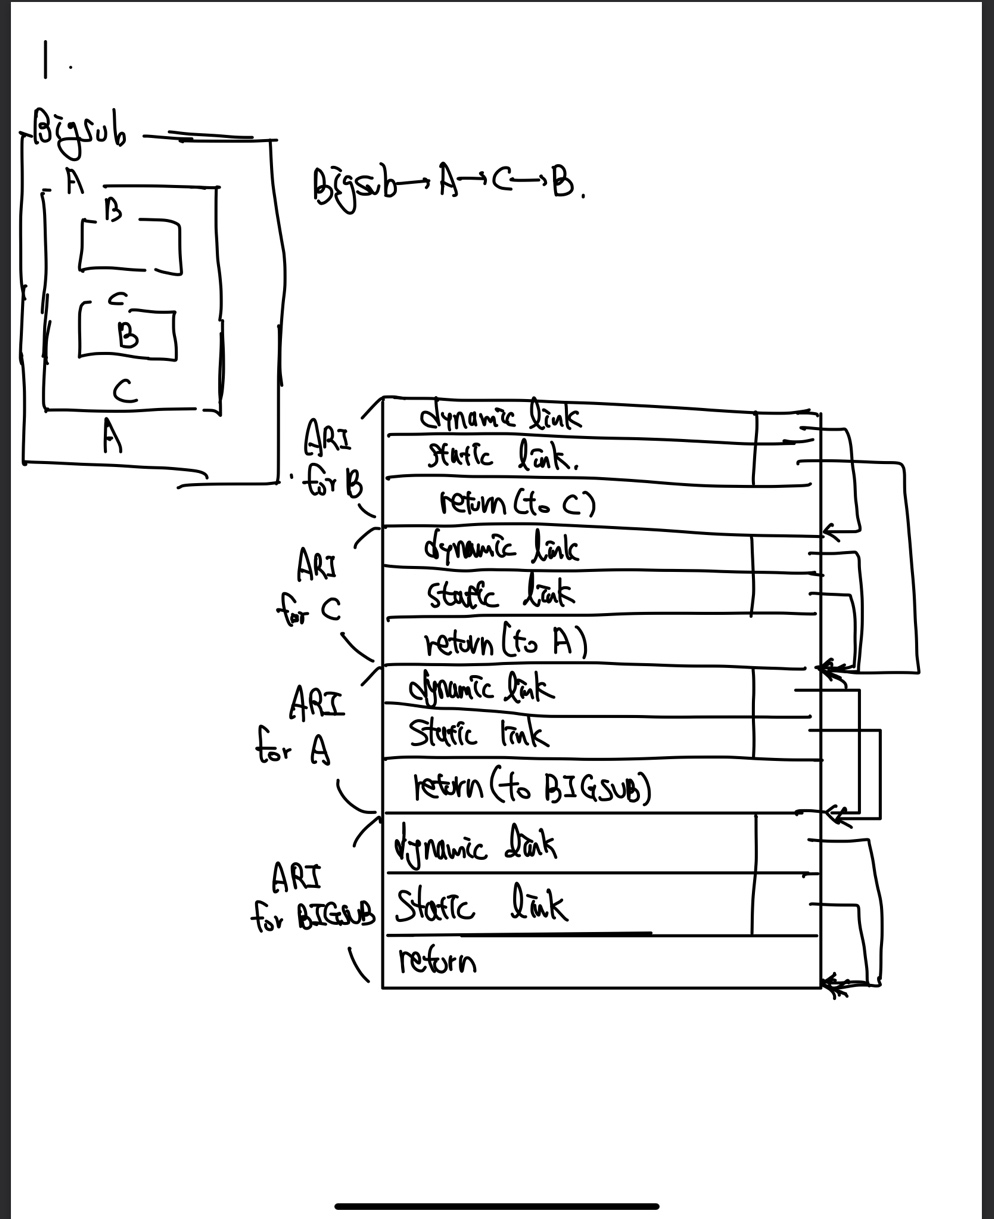 1.
Bigsub
A
B
C
B
C
A
Bigsub→A→C→B.
ARI
for B
dynamic link
static link.
return (to C)
ARI
for C
dynamic link
static link
return (to A)
ARI
for A
dynamic link
Static link
return (to BIGSUB)
ARI
for BIGSUB
dynamic link
Static link
return